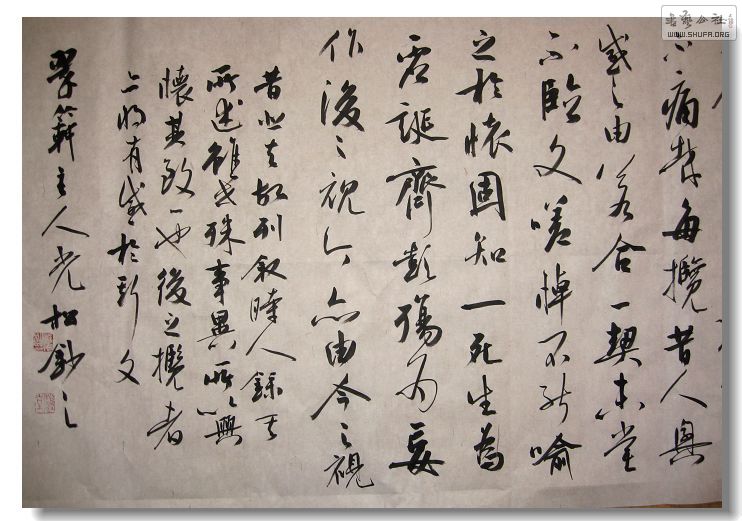 书艺公社
WWW.SHUFA.ORG
不痛哉每攬昔人興
感之由若合一契未嘗
不臨文嗟悼不能喻
之於懷固知一死生為
虛誕齊彭殤為妄
作後之視今亦由今之視
昔悲夫故列敘時人錄其
所述雖世殊事異所以興
懷其致一也後之攬者
亦將有感於斯文
翠主人光松鈔之